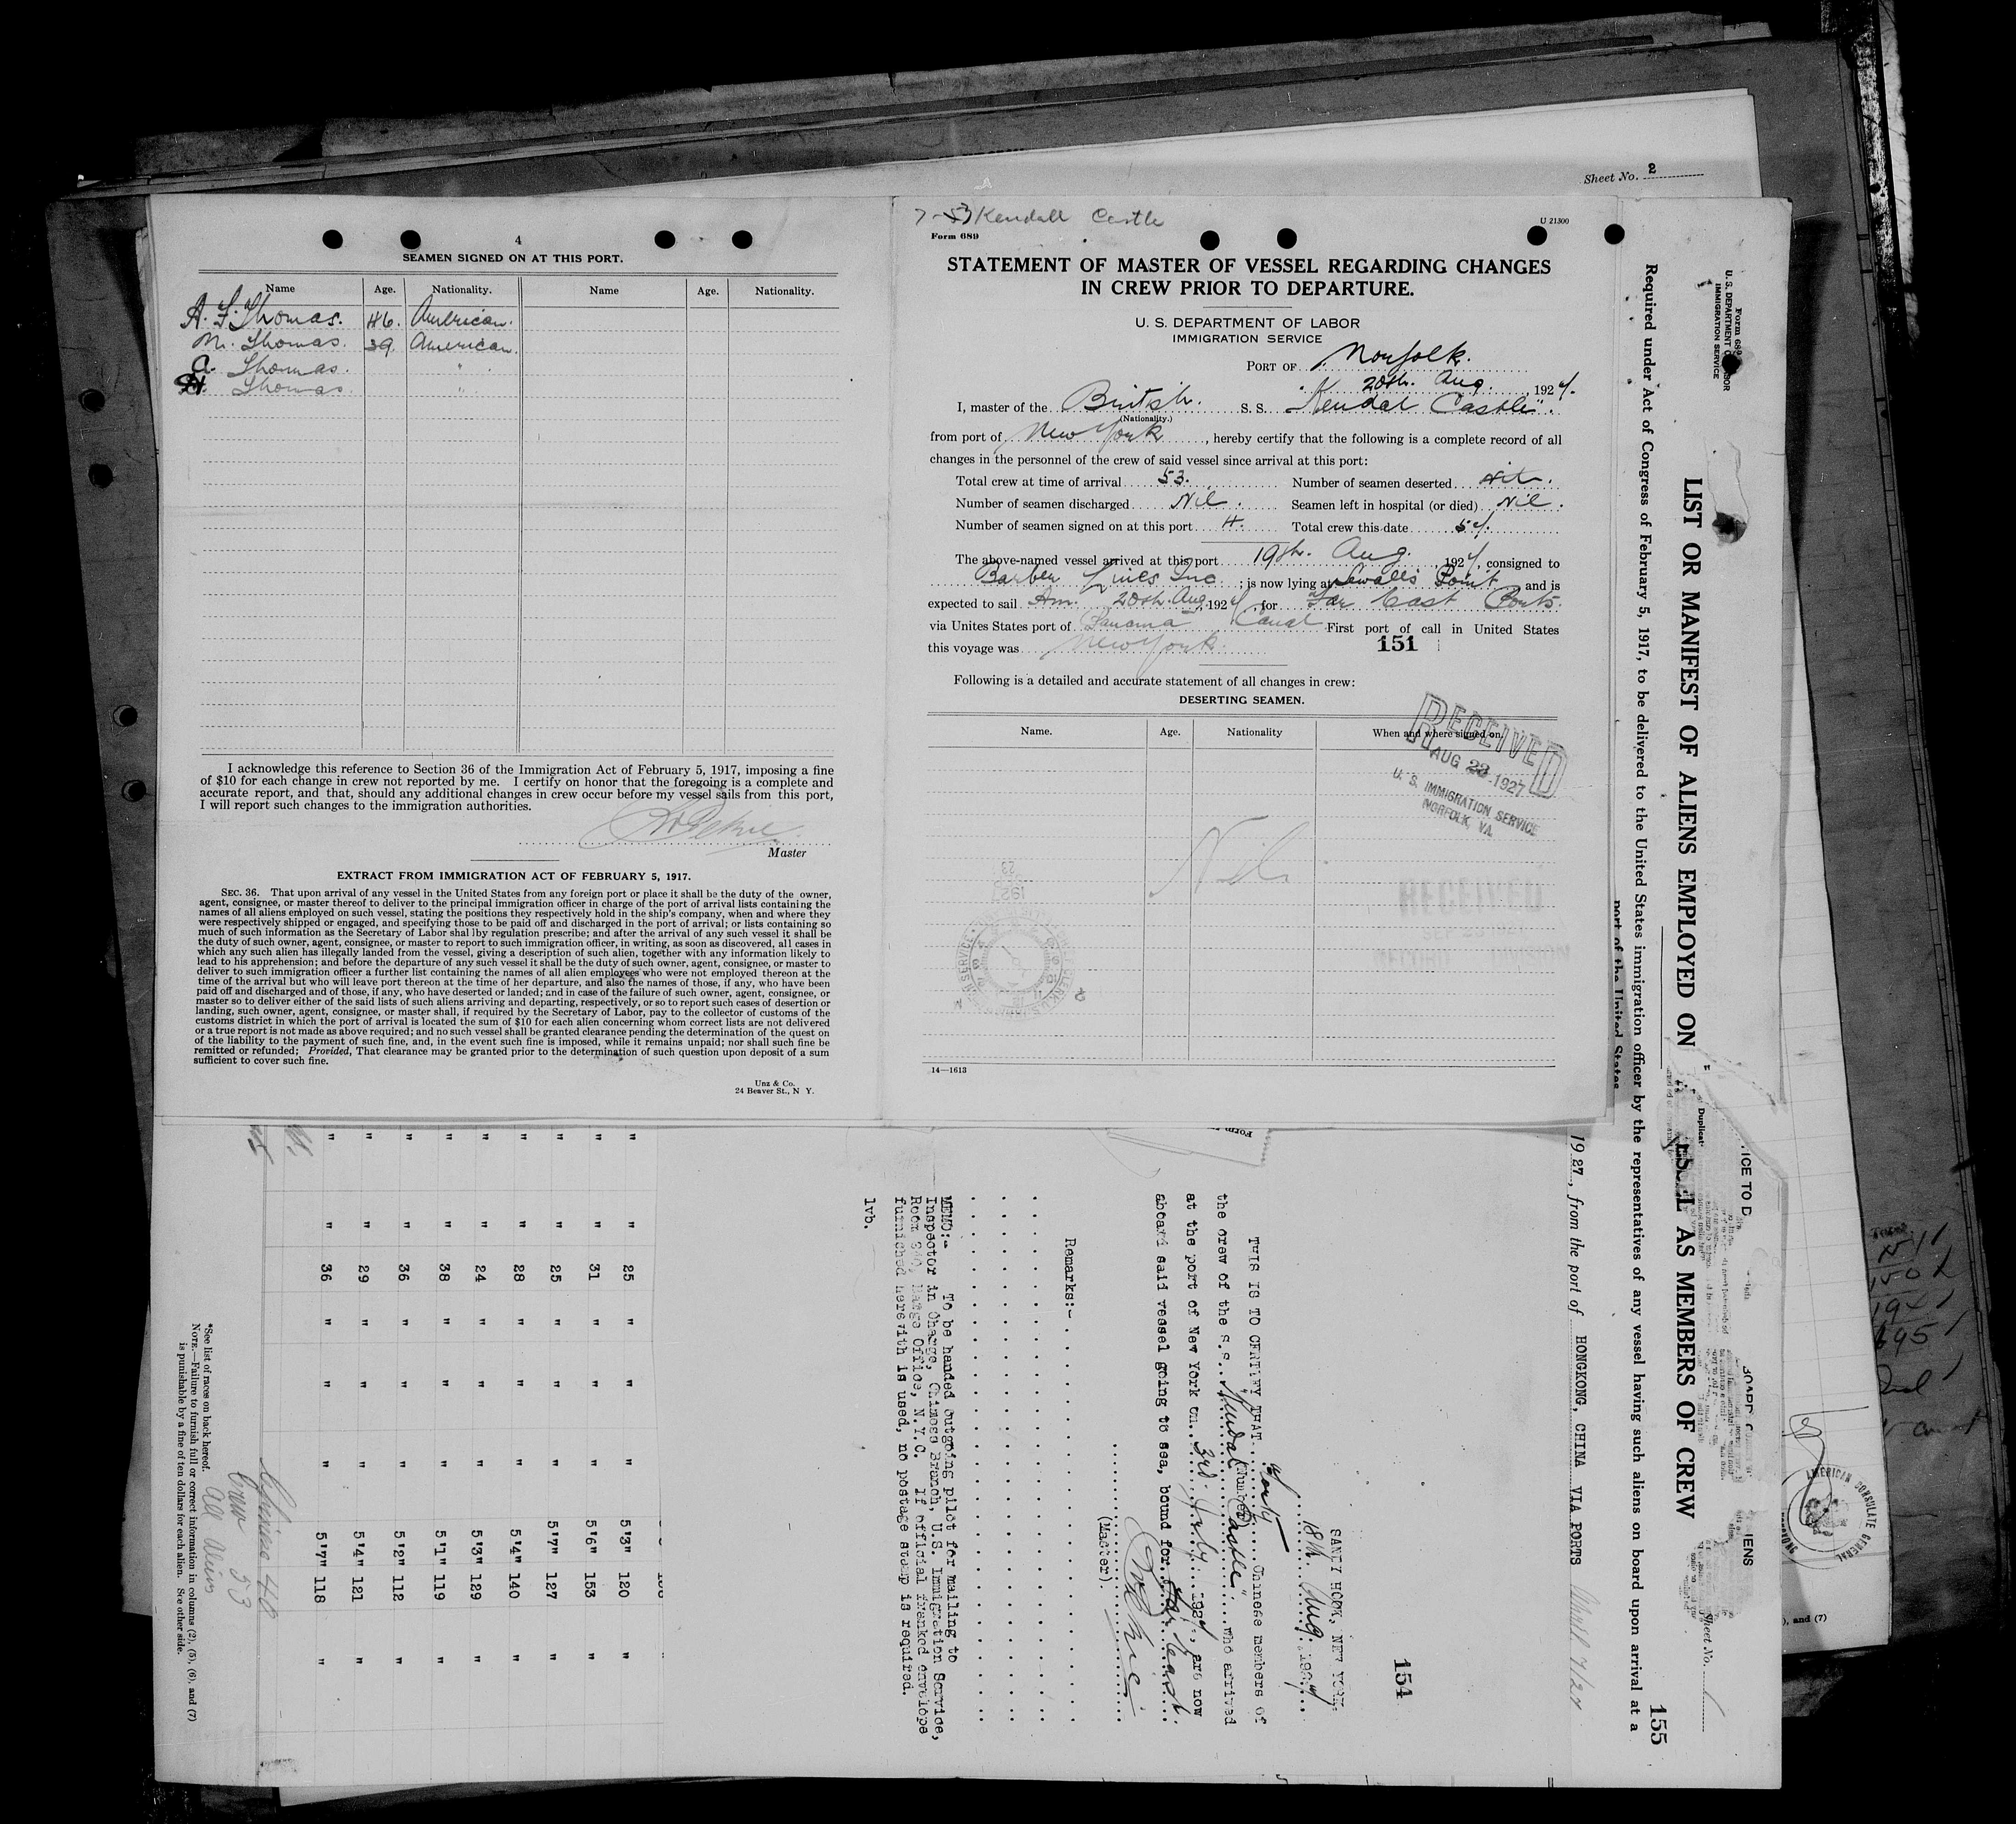 Sheet No. 2
4
SEAMEN SIGNED ON AT THIS PORT.
Name Age. Nationality. Name Age. Nationality.
A. F. Thomas. 46. American.
M. Thomas. 39. American.
A. Thomas. "
Thomas. "
I acknowledge this reference to Section 36 of the Immigration Act of February 5, 1917, imposing a fine
of $10 for each change in crew not reported by me. I certify on honor that the foregoing is a complete and
accurate report, and that, should any additional changes in crew occur before my vessel sails from this port,
I will report such changes to the immigration authorities.
Master
EXTRACT FROM IMMIGRATION ACT OF FEBRUARY 5, 1917.
SEC. 36. That upon arrival of any vessel in the United States from any foreign port or place it shall be the duty of the owner,
agent, consignee, or master thereof to deliver to the principal immigration officer in charge of the port of arrival lists containing the
names of all aliens employed on such vessel, stating the positions they respectively hold in the ship's company, when and where they
were respectively shipped or engaged, and specifying those to be paid off and discharged in the port of arrival; or lists containing so
much of such information as the Secretary of Labor shal lby regulation prescribe; and after the arrival of any such vessel it shall be
the duty of such owner, agent, consignee, or master to report to such immigration officer, in writing, as soon as discovered, all cases in
which any such alien has illegally landed from the vessel, giving a description of such alien, together with any information likely to
lead to his apprehension; and before the departure of any such vessel it shall be the duty of such owner, agent, consignee, or master to
deliver to such immigration officer a further list containing the names of all alien employees who were not employed thereon at the
time of the arrival but who will leave port thereon at the time of her departure, and also the names of those, if any, who have been
paid off and discharged and of those, if any, who have deserted or landed; and in case of the failure of such owner, agent, consignee, or
master so to deliver either of the said lists of such aliens arriving and departing, respectively, or so to report such cases of desertion or
landing, such owner, agent, consignee, or master shall, if required by the Secretary of Labor, pay to the collector of customs of the
customs district in which the port of arrival is located the sum of $10 for each alien concerning whom correct lists are not delivered
or a true report is not made as above required; and no such vessel shall be granted clearance pending the determination of the quest on
of the liability to the payment of such fine, and, in the event such fine is imposed, while it remains unpaid; nor shall such fine be
remitted or refunded; Provided, That clearance may be granted prior to the determination of such question upon deposit of a sum
sufficient to cover such fine.
Unz & Co.
24 Beaver St., N Y.
7-53 Kendall Castle
Form 689
U 21300
STATEMENT OF MASTER OF VESSEL REGARDING CHANGES
IN CREW PRIOR TO DEPARTURE.
U. S. DEPARTMENT OF LABOR
IMMIGRATION SERVICE
PORT OF Norfolk.
20th. Aug. 1927.
I, master of the British. S. S. "Kendal Castle".
(Nationality.)
from port of New York, hereby certify that the following is a complete record of all
changes in the personnel of the crew of said vessel since arrival at this port:
Total crew at time of arrival 53. Number of seamen deserted Nil.
Number of seamen discharged Nil. Seamen left in hospital (or died) Nil.
Number of seamen signed on at this port 4. Total crew this date 57.
The above-named vessel arrived at this port 19th. Aug. 1927, consigned to
Barber Lines Inc; is now lying at Sewalls Point and is
expected to sail Am. 20th. Aug. 1927, for Far East Ports.
via Unites States port of Panama Canal First port of call in United States
this voyage was New York. 151
Following is a detailed and accurate statement of all changes in crew:
DESERTING SEAMEN.
Name. Age. Nationality When and where signed on.
RECEIVED
AUG 23 1927
U. S. IMMIGRATION SERVICE
NORFOLK, VA.
Nil
RECEIVED
RECORD DIVISION
14—1613
Form 689
U. S. DEPARTMENT OF LABOR
IMMIGRATION SERVICE
LIST OR MANIFEST OF ALIENS EMPLOYED ON AS MEMBERS OF CREW
Required under Act of Congress of February 5, 1917, to be delivered to the United States immigration officer by the representatives of any vessel having such aliens on board upon arrival at a
port of the United States
Duplicat
Sheet No.
155
1927, from the port of HONGKONG, CHINA VIA PORTS April 7/27
154
SANDY HOOK, NEW YORK.
18th. Aug. 1927
THIS IS TO CERTIFY THAT Forty Chinese members of
(Number)
the crew of the S.S. "Kendal Castle" who arrived
at the port of New York on 3rd July 1927, are now
aboard said vessel going to sea, bound for Far East.
(Master).
Remarks:-
MEMO:- To be handed outgoing pilot for mailing to
Inspector in Charge, Chinese Branch, U.S. Immigration Service,
Room 340, Barge Office, N.Y.C. If official franked envelope
furnished herewith is used, no postage stamp is required.
lvb.
" " 25 " " " 5'3" 120 "
" " 31 " " " 5'6" 153 "
" " 25 " " " 5'7" 127 "
" " 28 " " " 5'4" 140 "
" " 24 " " " 5'3" 129 "
" " 38 " " " 5'1" 119 "
" " 36 " " " 5'2" 112 "
" " 29 " " " 5'4" 121 "
" " 36 " " " 5'7" 118 "
Chinese 40
Crew 53
All aliens
*See list of races on back hereof.
NOTE.—Failure to furnish full or correct information in columns (2), (5), (6), and (7)
is punishable by a fine of ten dollars for each alien. See other side.
), and (7)
AMERICAN CONSULATE GENERAL
HONGKONG